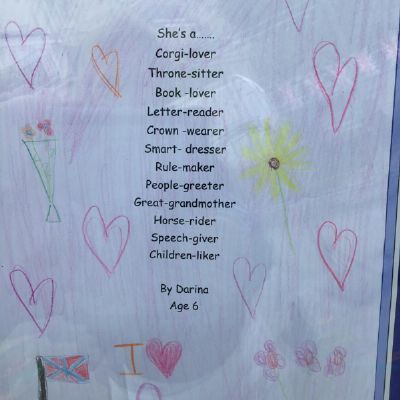 She's a.......
Corgi-lover
Throne-sitter
Book -lover
Letter-reader
Crown -wearer
Smart- dresser
Rule-maker
People-greeter
Great-grandmother
Horse-rider
Speech-giver
Children-liker
By Darina
Age 6
I